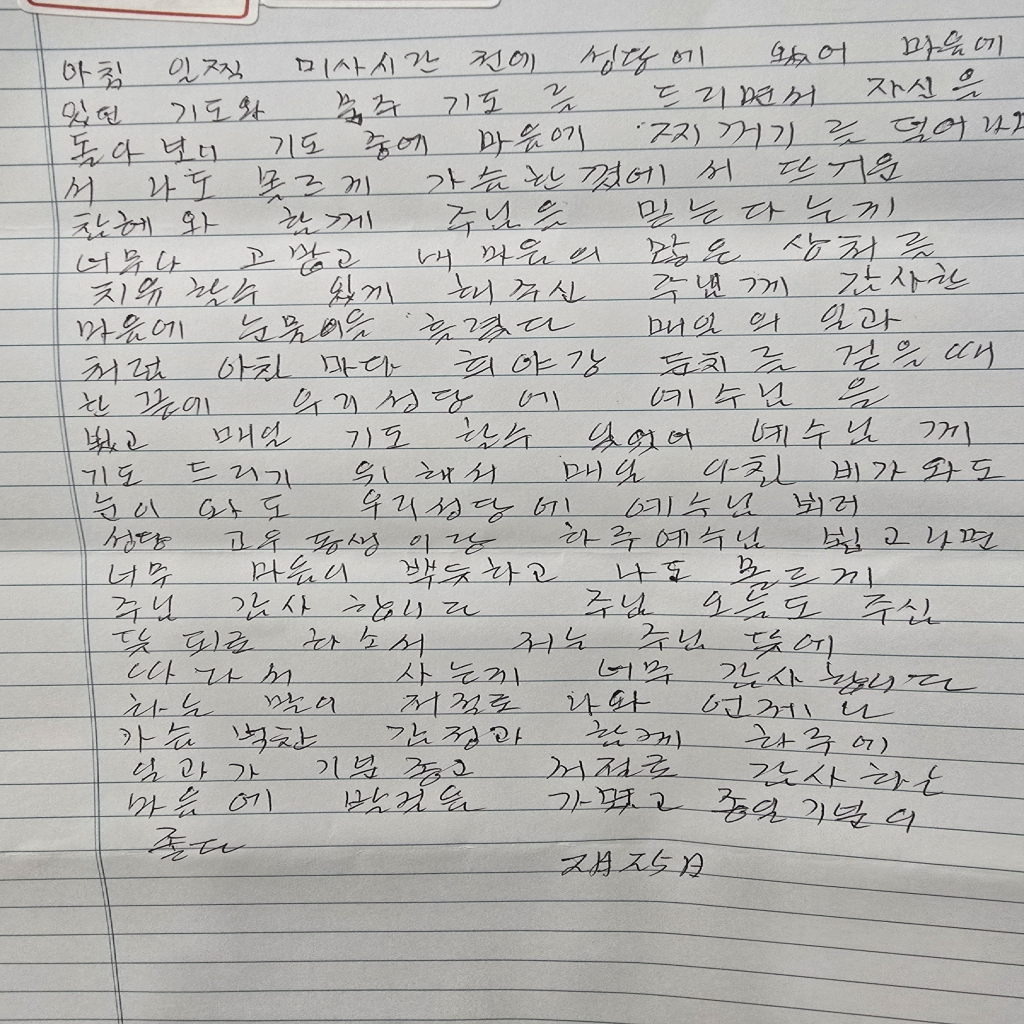 아침 일찍 미사시간 전에 성당에 왔어 마음에
있던 기도와 묵주 기도 를 드리면서 자신을
돌아 보며 기도 중에 마음에 찌꺼기 를 덜어 나
서 나도 몰르게 가슴한 에서 뜨거운
참헤 와 함께 주님을 믿는다는게
너무나 고맙고 내 마음의 많은 상처를
치유 할수 있게 해주신 주님께 감사한
마음에 눈물 흘렸다 매일 의 일과
처럼 아침 마다 희야강 둑치를 걷을때
한 끝에 우리성당 에 예수님 을
뵜고 매일 기도 할수 있었어 예수님 께
기도 드리기 위해서 매일 아침 비가 와도
눈이 와도 우리성당에 예수님 뵈러
성당 고우 동생 이랑 하주예수님 뵙고나면
너무 마음이 뿌듯하고 나도 몰르게
주님 감사 합니다 주님 오늘도 주신
뜻 되로 하소서 저는 주님 뜻에
따라서 사는게 너무 감사합니다
하는 말이 저절로 나와 언제나
가슴 벅찬 감정과 함께 하루에
일과가 기분좋고 저절로 감사하는
마음에 발걸음 가볍고 종일기분이
좋다